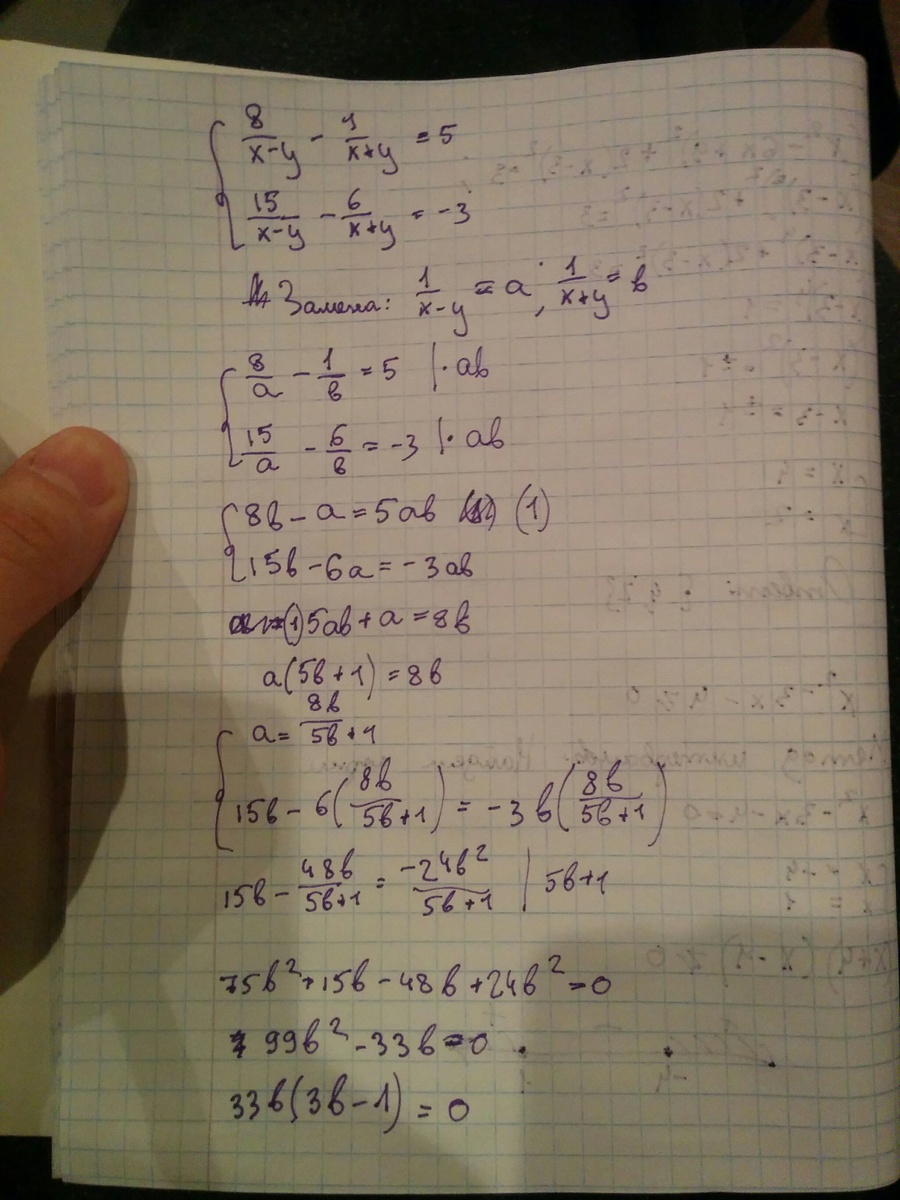 8/(x-y) - 1/(x+y) = 5
15/(x-y) - 6/(x+y) = -3
Замена: 1/(x-y) = a; 1/(x+y) = b
8/a - 1/b = 5 |·ab
15/a - 6/b = -3 |·ab
8b - a = 5ab (1)
15b - 6a = -3ab
(1) 5ab + a = 8b
a(5b+1) = 8b
a = 8b/(5b+1)
15b - 6(8b/(5b+1)) = -3b(8b/(5b+1))
15b - 48b/(5b+1) = -24b²/(5b+1) | 5b+1
75b² + 15b - 48b + 24b² = 0
99b² - 33b = 0
33b(3b-1) = 0